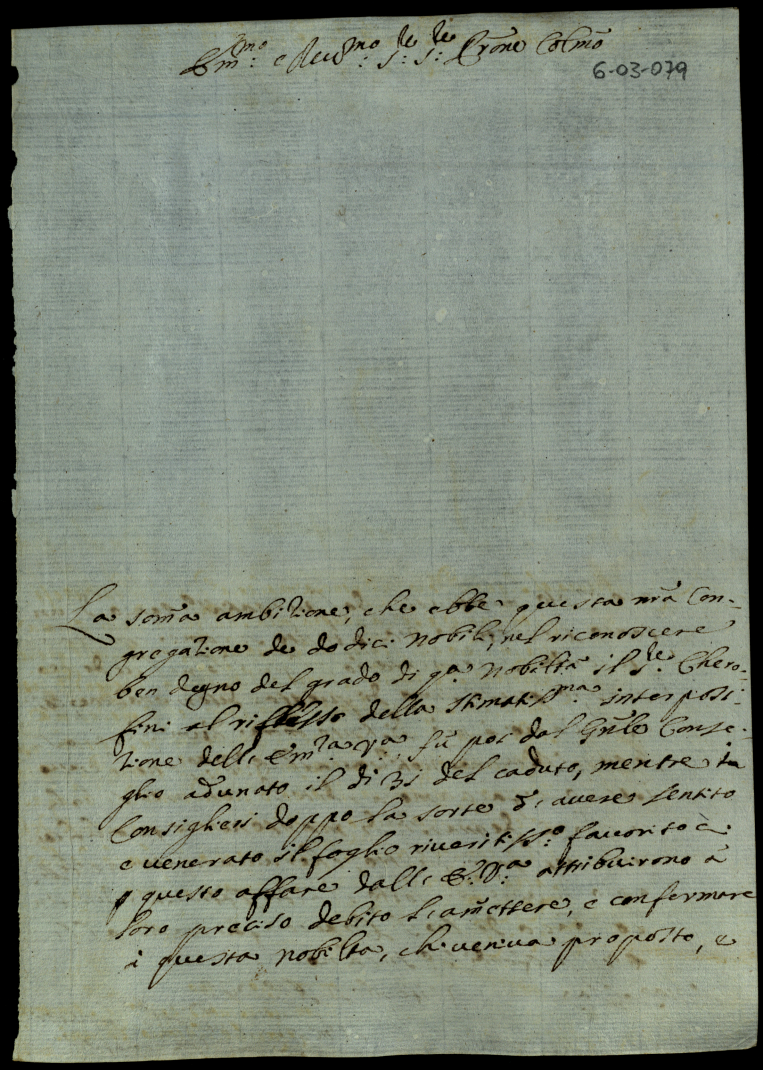 Em:mo e Rev:mo S:re S:re Prōne Colmo
6-03-079
La som̄a ambizione, che ebbe questa nrā Con-
gregazione de dodici Nobili, nel riconoscere
ben degno del grado di qa. Nobiltà il S:re Chero-
fini al riflesso della stimatissma interposi-
zione dell' Em:za Va. fù poi dal Gnlē Consi-
glio adunato il di 31 del caduto, mentre i
Consiglieri doppo la sorte d' avere sentito
e venerato il foglio riveritisso. favorito à
p questo affare dall' E: Va. attribuirono à
loro preciso debito l' am̄ettere, e confermare
à questa nobiltà, chi veniva proposto, e